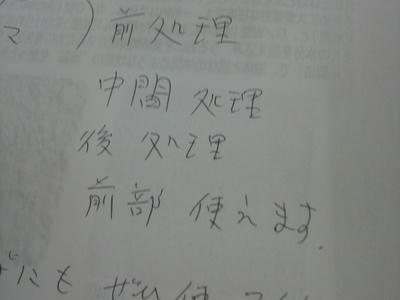 マ ) 前処理
中間 処理
後 処理
前部 使えます.
にも ぜひ 使